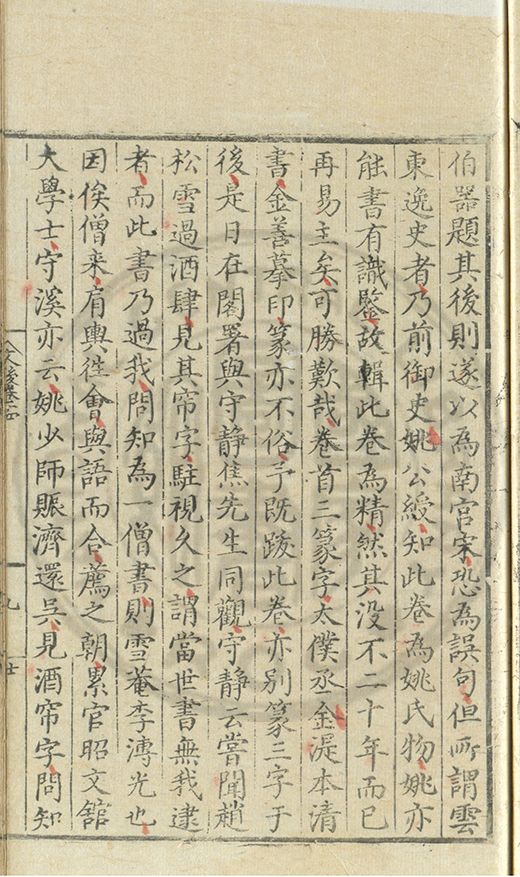 伯器題其後則遂以為南宮宋恐為誤句但所謂雲
東逸史者乃前御史姚公綬知此卷為姚氏物姚亦
能書有識鑒故輯此卷為精然其没不二十年而已
再易主矣可勝歎哉卷首三篆字太僕丞金湜本清
書金善摹印篆亦不俗予既跋此卷亦别篆三字于
後是日在閣署與守静焦先生同觀守静云嘗聞趙
松雪過酒肆見其帘字駐視久之謂當世書無我逮
者而此書乃過我問知為一僧書則雪菴李溥光也
因俟僧来肩輿徃會與語而合薦之朝累官昭文館
大學士守溪亦云姚少師賑濟還吳見酒帘字問知
文後卷
九